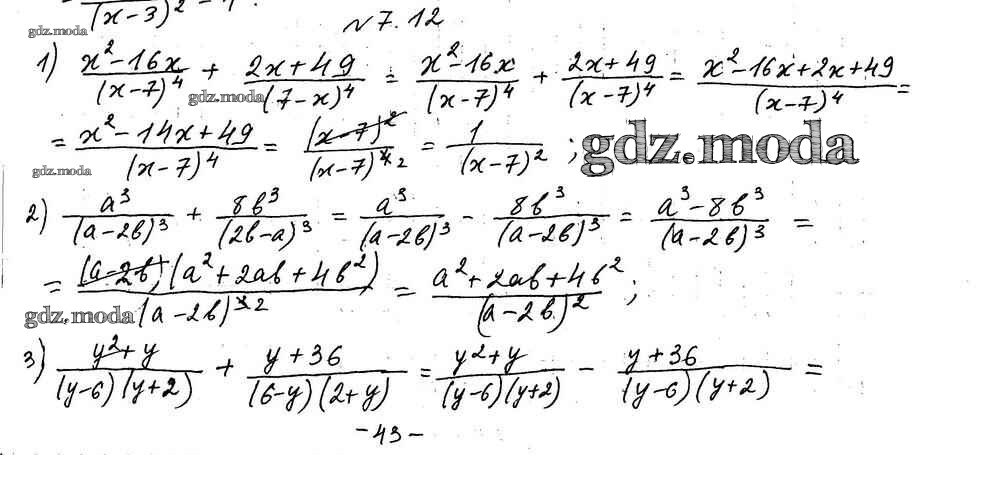 (x-3)²
gdz.moda
№7.12
1) (x²-16x)/(x-7)⁴ + (2x+49)/(7-x)⁴ = (x²-16x)/(x-7)⁴ + (2x+49)/(x-7)⁴ = (x²-16x+2x+49)/(x-7)⁴ =
gdz.moda
= (x²-14x+49)/(x-7)⁴ = (x-7)²/(x-7)⁴ ² = 1/(x-7)² ;
gdz.moda
gdz.moda
2) a³/(a-2b)³ + 8b³/(2b-a)³ = a³/(a-2b)³ - 8b³/(a-2b)³ = (a³-8b³)/(a-2b)³ =
= (a-2b)(a²+2ab+4b²)/(a-2b)³ ² = (a²+2ab+4b²)/(a-2b)² ;
gdz.moda
3) (y²+y)/((y-6)(y+2)) + (y+36)/((6-y)(2+y)) = (y²+y)/((y-6)(y+2)) - (y+36)/((y-6)(y+2)) =
-43-